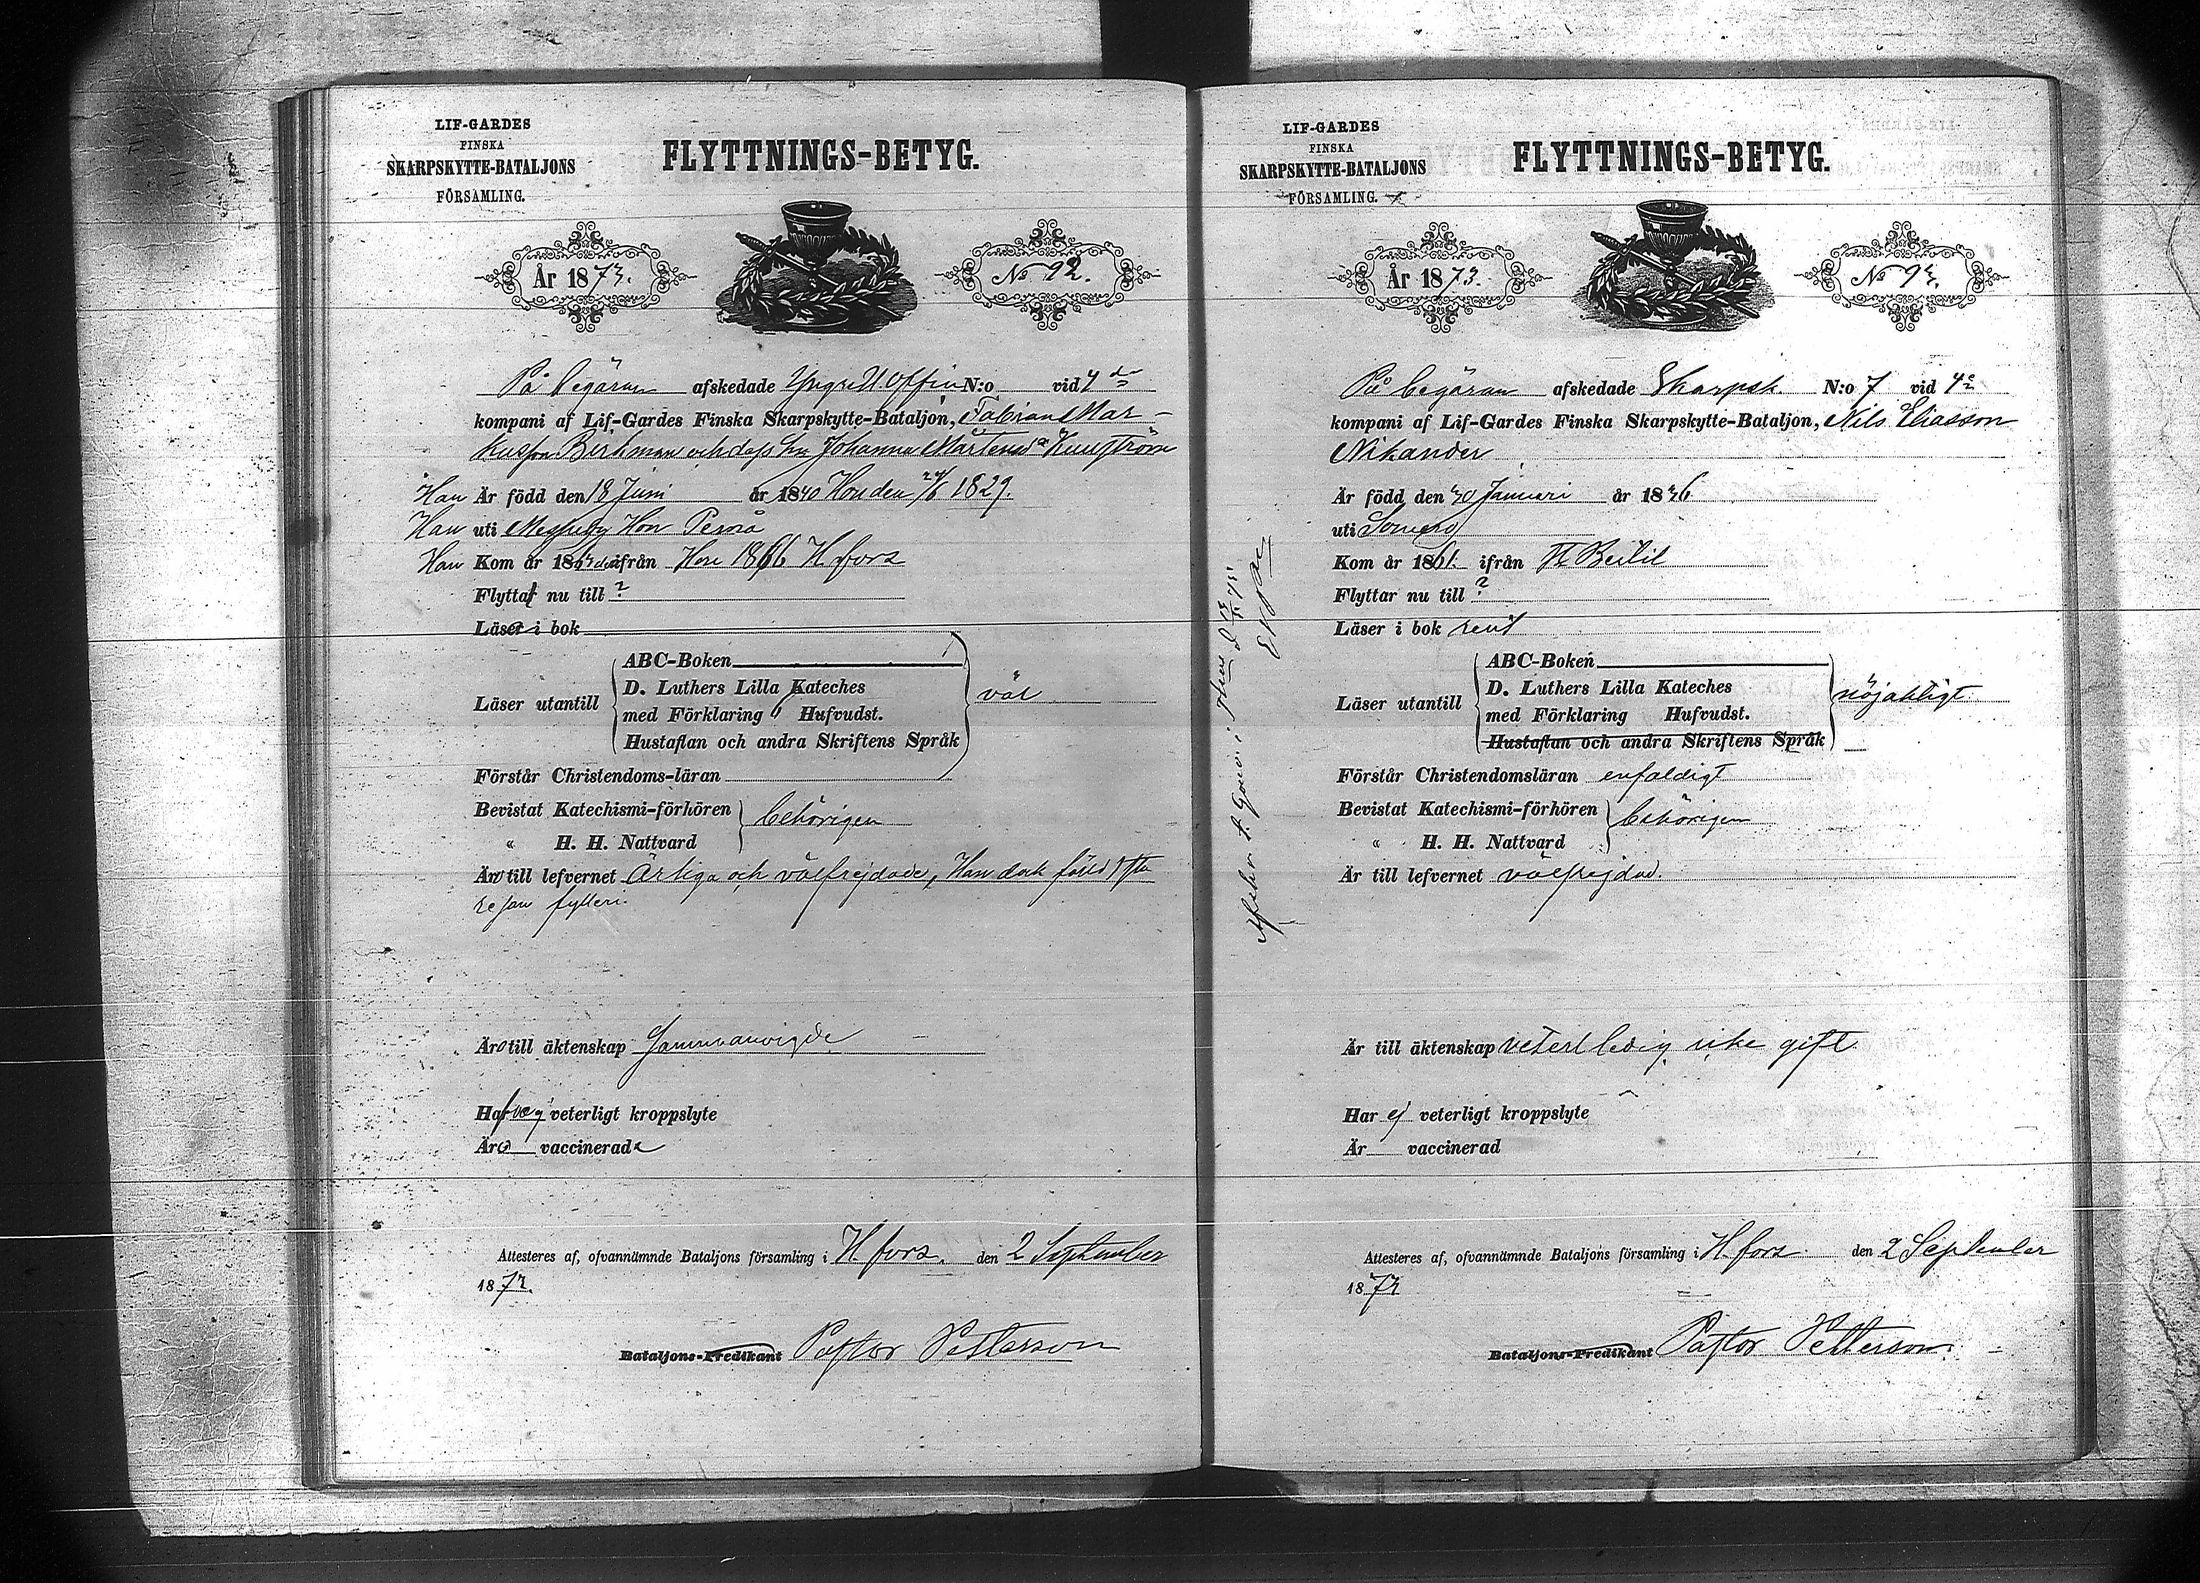 LIF-GARDES
FINSKA
SKARPSKYTTE-BATALJONS
FÖRSAMLING.
FLYTTNINGS-BETYG.
År 1873.
No 92.
På begäran afskedade Yngre Uoffic N:o vid 4de
kompani af Lif-Gardes Finska Skarpskytte-Bataljon, Fabian Mar-
kusson Birkman och dess hu Johanna Mårtensdr
Han Är född den 18 Juni år 1840 Hon den 1829.
Han uti Messuby Hon Pernå
Han Kom år 1863 ifrån Hon 1866 H.fors
Flyttar nu till ?
Läsa i bok
ABC-Boken
Läser utantill
D. Luthers Lilla Kateches
med Förklaring Hufvudst.
Hustaflan och andra Skriftens Språk
väl
Förstår Christendoms-läran
Bevistat Katechismi-förhören
behörigen
" H. H. Nattvard
Äro till lefvernet Ärliga och välfrejdade, Han dock fälld
resan fylleri.
Äro till äktenskap Sammanvigde
Hafva ej veterligt kroppslyte
Äro vaccinerade
Attesteres af, ofvannämnde Bataljons församling i H.fors. den 2 September
1873.
Bataljons-Predikant Pastor Petterson
LIF-GARDES
FINSKA
SKARPSKYTTE-BATALJONS
FÖRSAMLING.
FLYTTNINGS-BETYG.
År 1873.
No 93.
På begäran afskedade Skarpsk. N:o 7 vid 4e
kompani af Lif-Gardes Finska Skarpskytte-Bataljon, Nils Eliasson
Nikander
Är född den 30 Januari år 1836
uti Somero
Kom år 1861. ifrån St Bertil
Flyttar nu till ?
Läser i bok rent
ABC-Boken
Läser utantill
D. Luthers Lilla Kateches
med Förklaring Hufvudst.
Hustaflan och andra Skriftens Språk
nöjaktigt.
Förstår Christendomsläran enfaldigt
Bevistat Katechismi-förhören
behörigen
" H. H. Nattvard
Är till lefvernet välfrejdad.
Är till äktenskap veterl ledig icke gift.
Har ej veterligt kroppslyte
Är vaccinerad
Attesteres af, ofvannämnde Bataljons församling i H.fors. den 2 September
1873
Bataljons-Predikant Pastor Petterson.